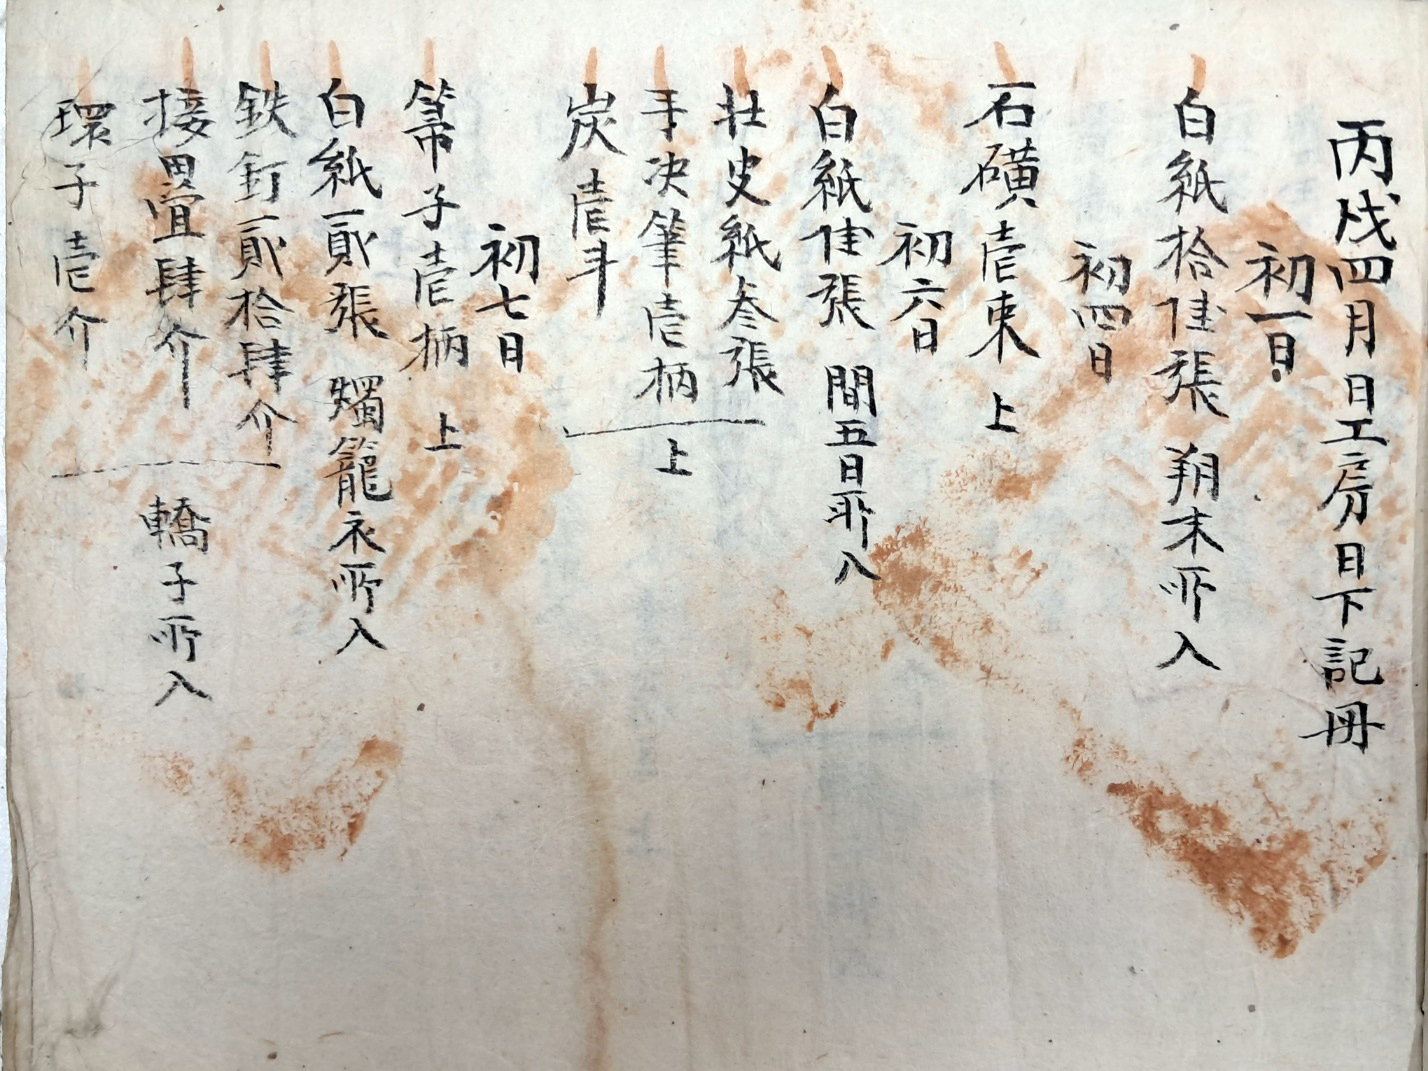 丙戌四月日工房日下記冊
初一日
白紙拾佳張 朔末所入
初四日
石磺壱束 上
初六日
白紙佳張 間五日所入
壯皮紙叁張
手决筆壱柄
上
炭壱斗
初七日
箒子壱柄 上
白紙貳張 燭籠衣所入
鉄釘貳拾肆介
接罒疊肆介
轎子所入
環子壱介